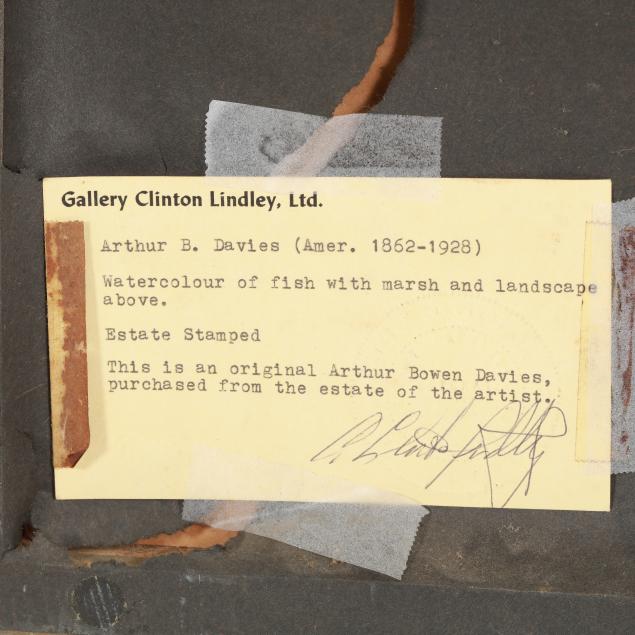 Gallery Clinton Lindley, Ltd.
Arthur B. Davies (Amer. 1862-1928)
Watercolour of fish with marsh and landscape
above.
Estate Stamped
This is an original Arthur Bowen Davies,
purchased from the estate of the artist.